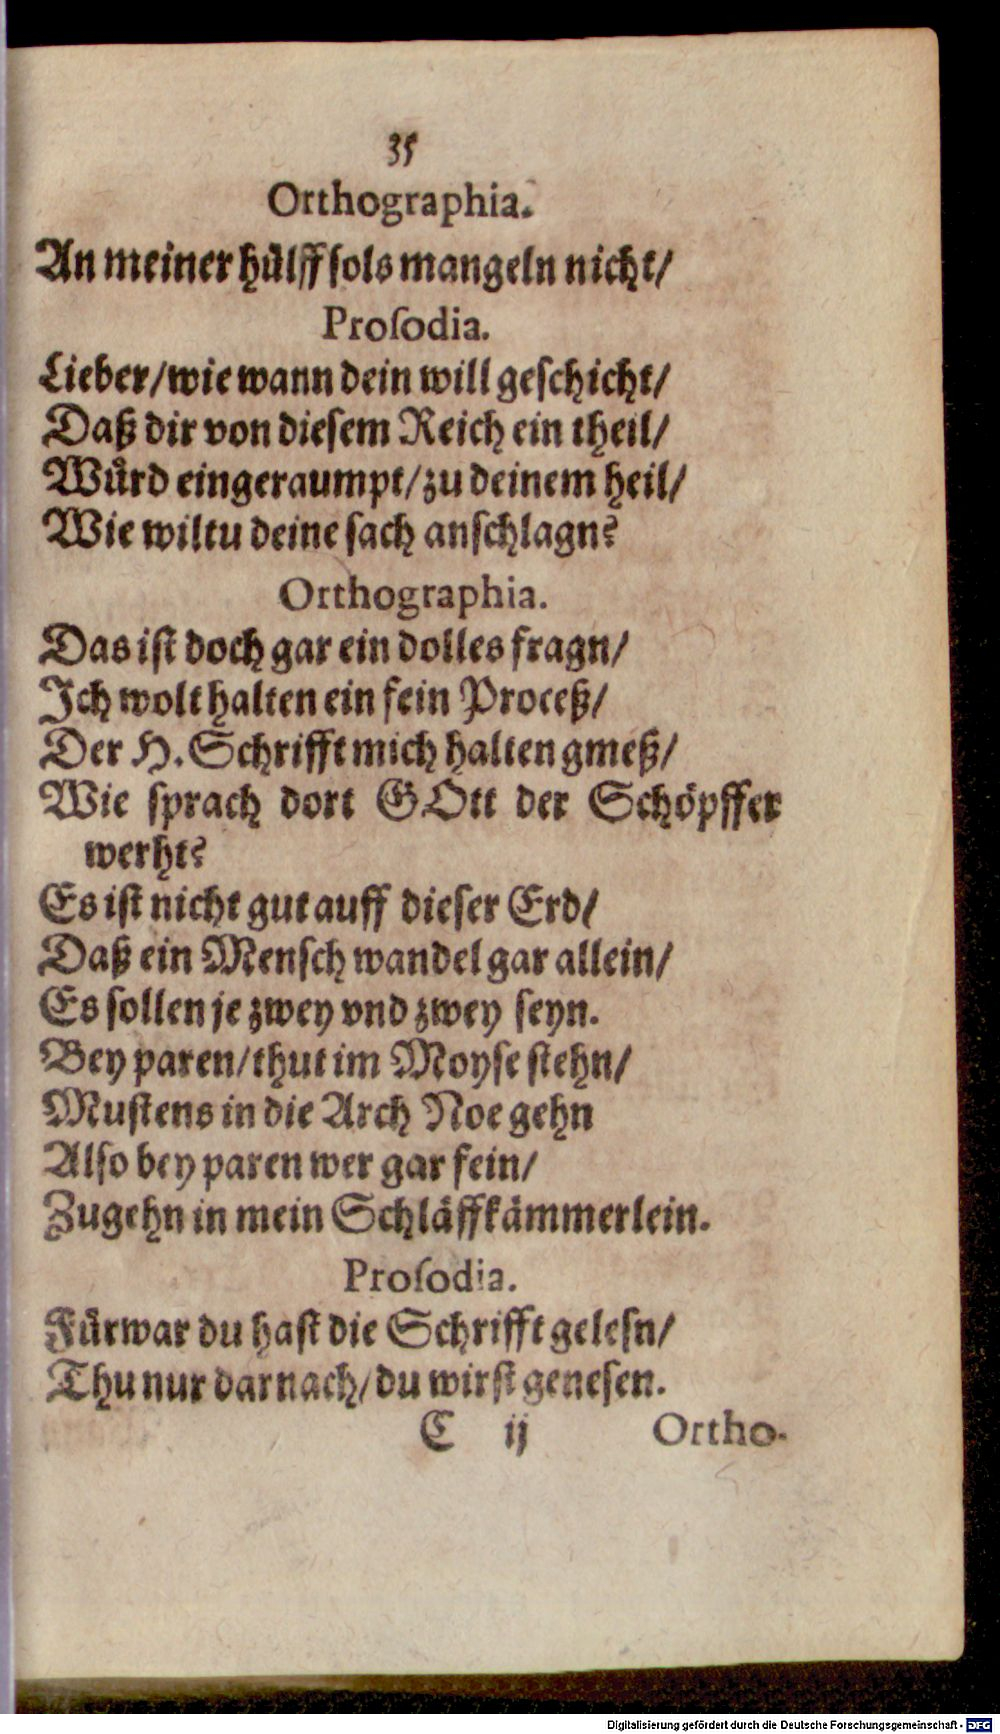 35
Orthographia.
An meiner hülff sols mangeln nicht/
Proſodia.
Lieber/wie wann dein will geſchicht/
Daß dir von dieſem Reich ein theil/
Würd eingeraumpt/zu deinem heil/
Wie wiltu deine ſach anſchlagn?
Orthographia.
Das iſt doch gar ein dolles fragn/
Ich wolt halten ein fein Proceß/
Der H. Schrifft mich halten gmeß/
Wie ſprach dort GOtt der Schöpffer
werht?
Es iſt nicht gut auff dieſer Erd/
Daß ein Menſch wandel gar allein/
Es ſollen je zwey vnd zwey ſeyn.
Bey paren/thut im Moyſe ſtehn/
Muſtens in die Arch Noe gehn
Alſo bey paren wer gar fein/
Zugehn in mein Schläffkämmerlein.
Proſodia.
Fürwar du haſt die Schrifft geleſn/
Thu nur darnach/du wirſt geneſen.
C ij Ortho-
Digitalisierung gefördert durch die Deutsche Forschungsgemeinschaft - DFG